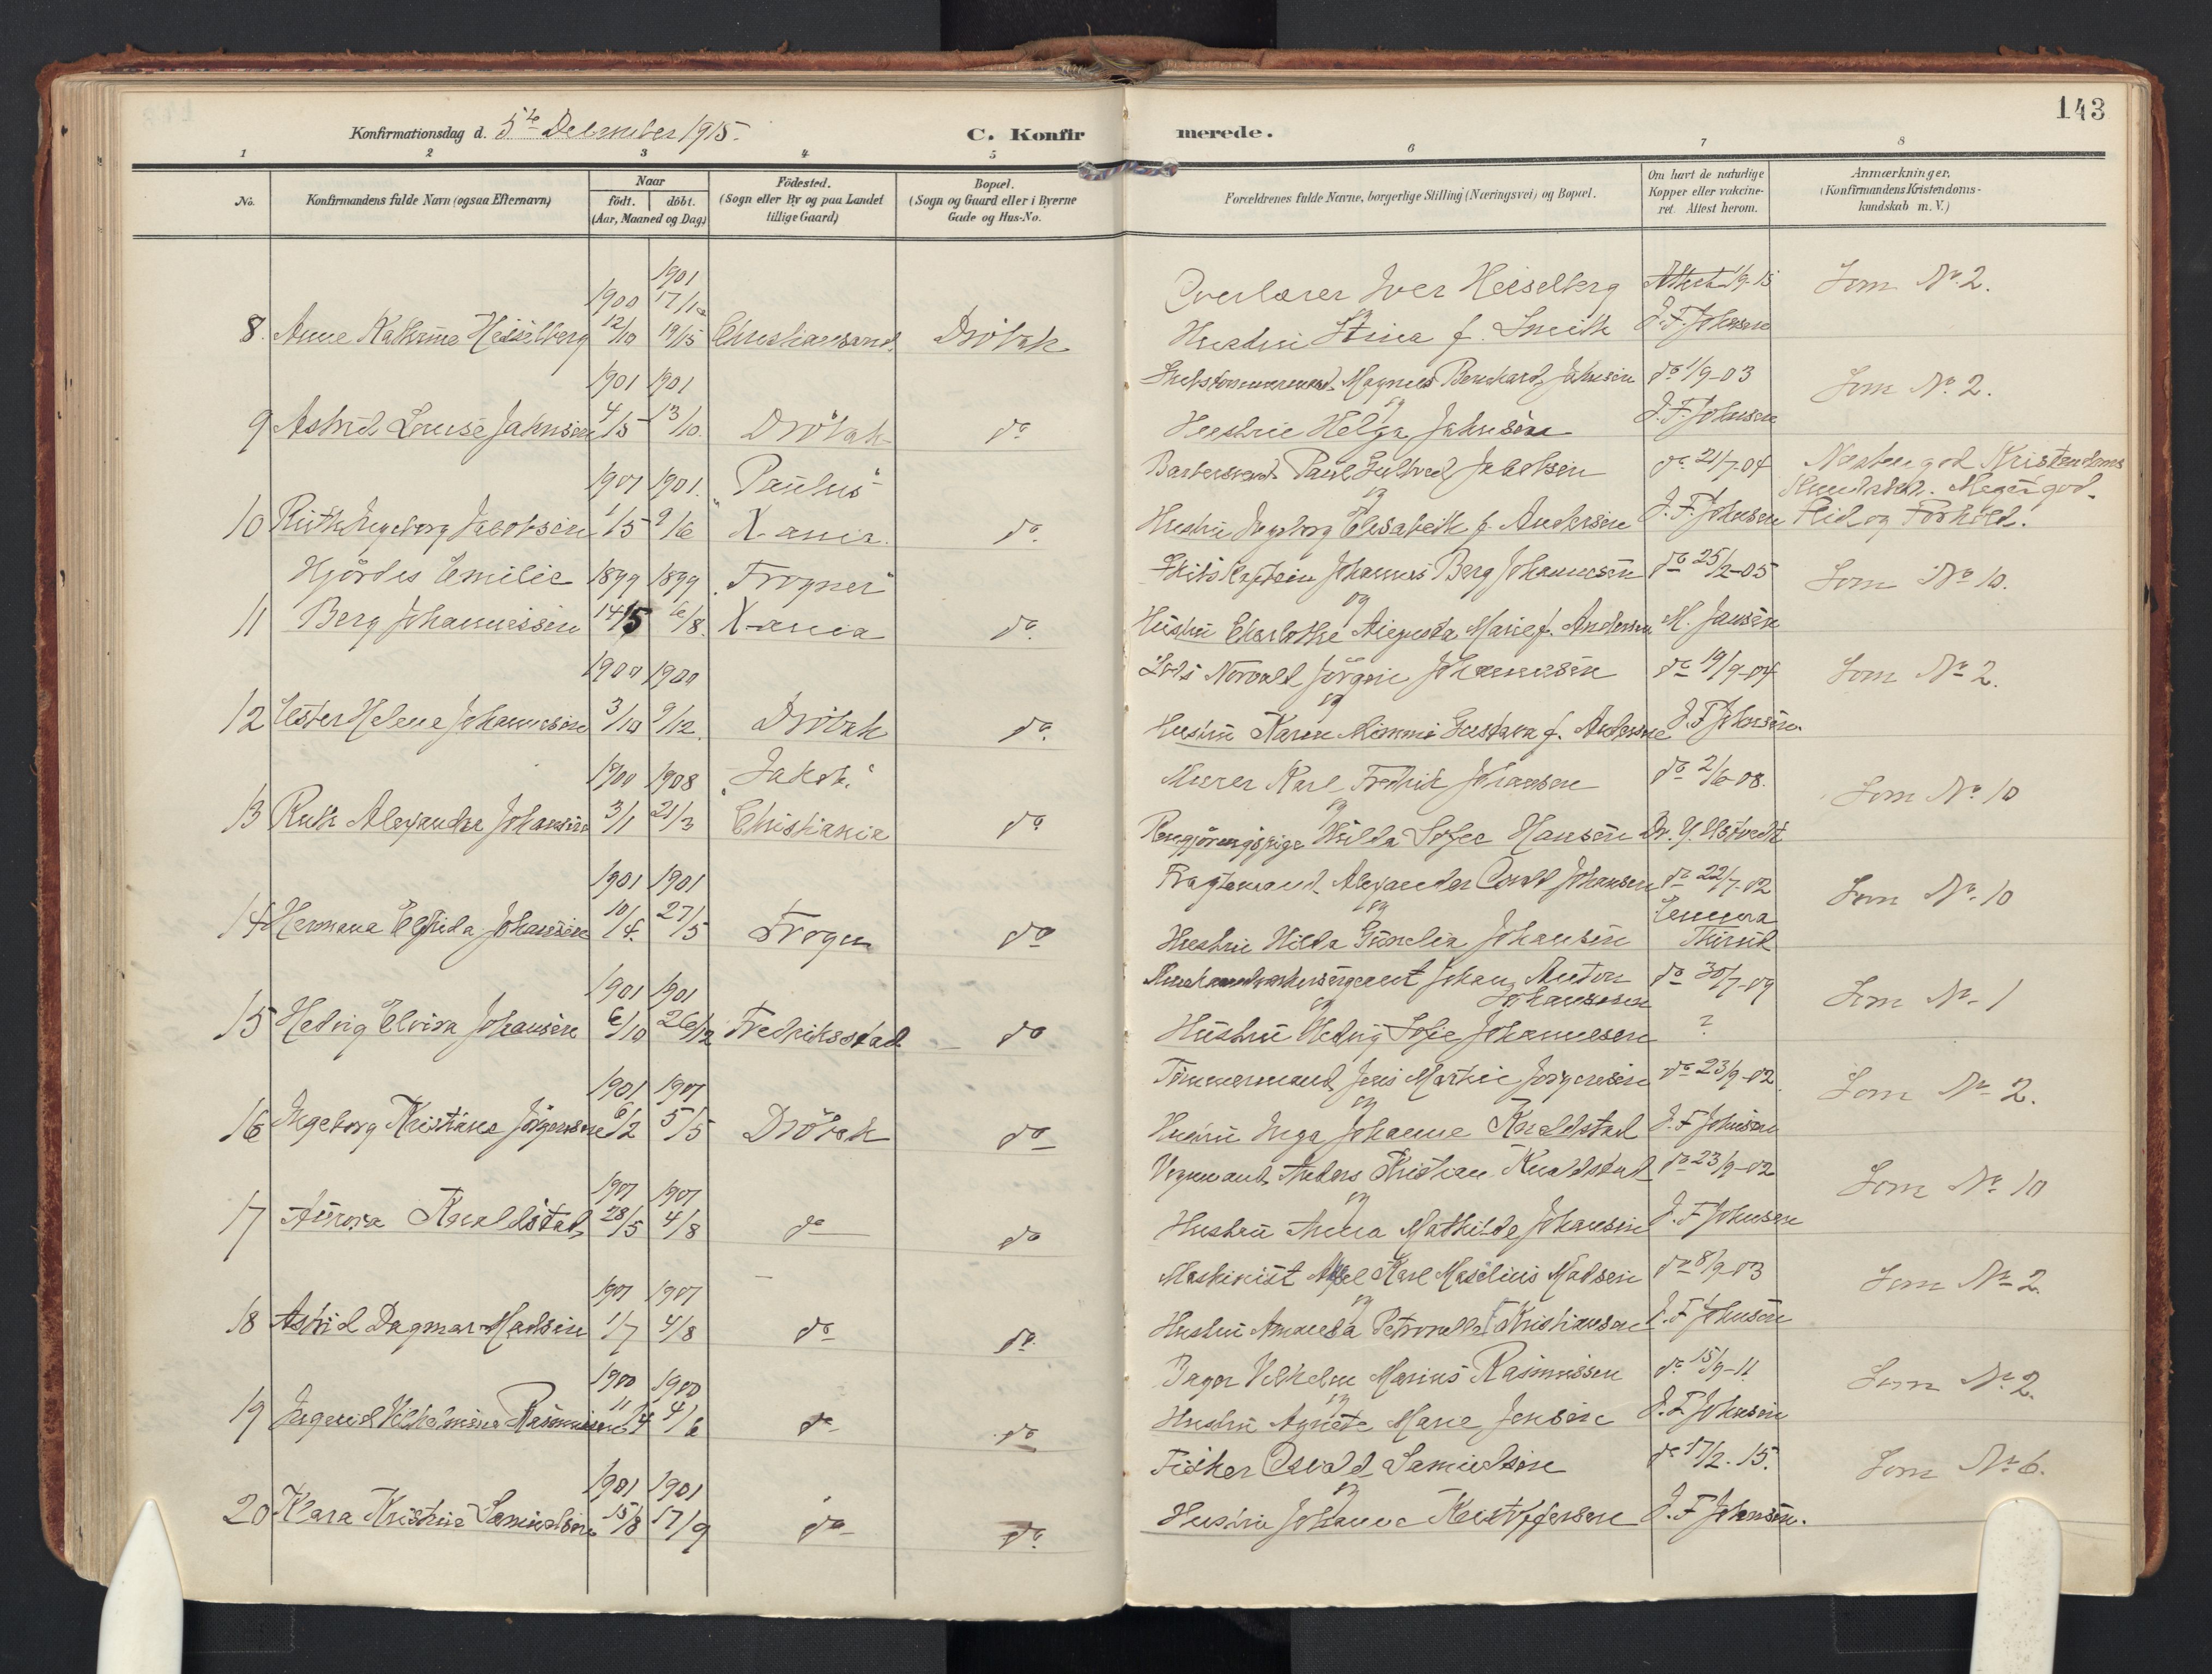 143
Konfirmationsdag d. 5te December 1915.
C. Konfirmerede.
1 2 3 4 5 6 7 8
No.
Konfirmandens fulde Navn (ogsaa Efternavn)
Naar
født. døbt.
(Aar, Maaned og Dag)
Fødested.
(Sogn eller By og paa Landet
tillige Gaard)
Bopæl.
(Sogn og Gaard eller i Byerne
Gade og Hus-No.
Forældrenes fulde Navne, borgerlige Stilling (Næringsvei) og Bopæl.
Om havt de naturlige
Kopper eller vakcine-
ret. Attest herom.
Anmærkninger.
(Konfirmandens Kristendoms-
kundskab m. V.)
1901
1900 17/10
8. Anne Kathrine Heiselberg 12/10 19/15 Christiansand. Drøbak
Overlærer Iver Heiselberg Attest 1/9-15 Som No 2.
og
Hustru Stina f. Smith J. F. Johnsen
1901 1901
9 Astrid Louise Jahnsen 4/5 13/10. Drøbak do
Magnus Bernhard Jahnsen do 1/9-03 Som No. 2.
og
Hustru Helga Jahnsen J. F. Johnsen
1901 1901. "Paulus"
10 Ruth Ingeborg Jacobsen 1/5 9/6 X-ania. do.
Paul Jacobsen do 21/7-04 Kristendoms
og Meget god
Hustru Ingeborg Elisabeth f. Andersen J. F. Johnsen Flid og Forhold.
Hjørdis Emilie 1899 1899 "Frogner"
11 Berg Johannessen 14/5 6/8. X-ania do.
Skibskaptein Johannes Berg Johannesen do 25/2-05 Som No 10.
og
Hustru Charlotte Augusta Marie f. Andersen M. Jansen
1900 1900
12 Ester Helene Johannesen 3/10 9/12. Drøbak do.
Lods Norvald Jørgen Johannesen do 19/9-04 Som No 2.
og
Hustru Karen Mimmi Gustava f. Andersen J. F. Johnsen.
1900 1908 "Jakob"
13 Ruth Alexandra Johansen 3/1 21/3 Christiania do
Murer Karl Fredrik Johansen do 2/6-08. Som No. 10
og
Rengjøringspige Hilda Sofie Hansen Dr.
1901 1901
14 Hermana Elfrida Johansen 10/4. 27/5 Frogn do
Fragtemand Alexander Johansen do 22/7-02 Som No. 10
og
Hustru Hilda Johansen
1901 1901
15 Hedvig Elvira Johansen 6/10 26/12 Fredriksstad do
Johan Anton do 30/7-09 Som No. 1
Johannesen
og
Hustru Hedvig Sofie Johannesen ?
1901 1901
16 Ingeborg Kristiane Jörgensen 6/2 5/5 Drøbak do
Tømmermand Jens Martin Jørgensen do 23/9-02 Som No 2.
og
Hustru Inga Johanne Knaldstad J. F. Johnsen
1901 1901
17 Aurora Knaldstad 28/5 4/8 do do
Vognmand Anders Kristian Knaldstad do 23/9-02 Som No. 10
og
Hustru Anna Mathilde Johansen J. F. Johnsen
1901 1901
18 Astrid Dagmar Madsen 1/7 4/8 do do.
Maskinist Axel Karl Maselius Madsen do 8/9-03 Som No 2.
og
Hustru Amanda Petronelle Kristiansen J. F. Johnsen
1900 1900
19 Ingerid Vilhelmine Rasmussen 11/4 4/6 do do
Bager Vilhelm Marius Rasmussen do 15/9-11 Som No. 2.
og
Hustru Agnete Marie Jensen J. F. Johnsen
1901 1901
20. Klara Kristine Samuelsen 15/8 17/9 do do.
Fisker Osvald Samuelsen do 17/2.15. Som No 6.
og
Hustru Johanne Kristofersen J. F. Johnsen.